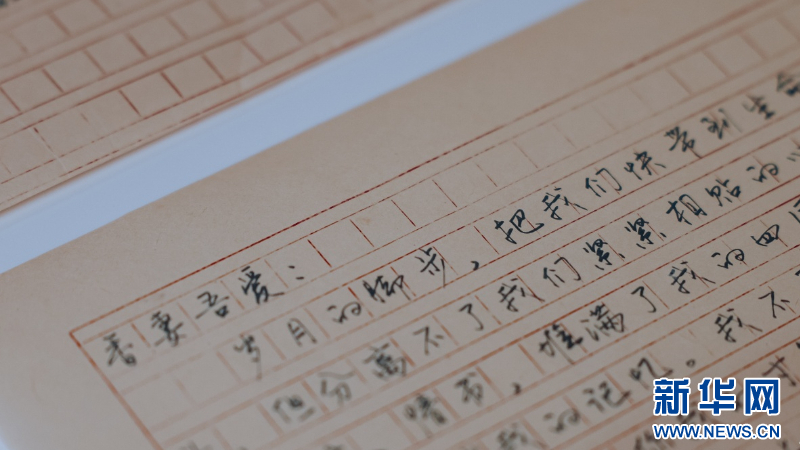 吾妻吾爱：
岁月的脚步，把我们快带到生命
但分离不了我们紧紧相贴的心
情书，堆满了我的四周
我的记忆。我不
新华网
WWW.NEWS.CN